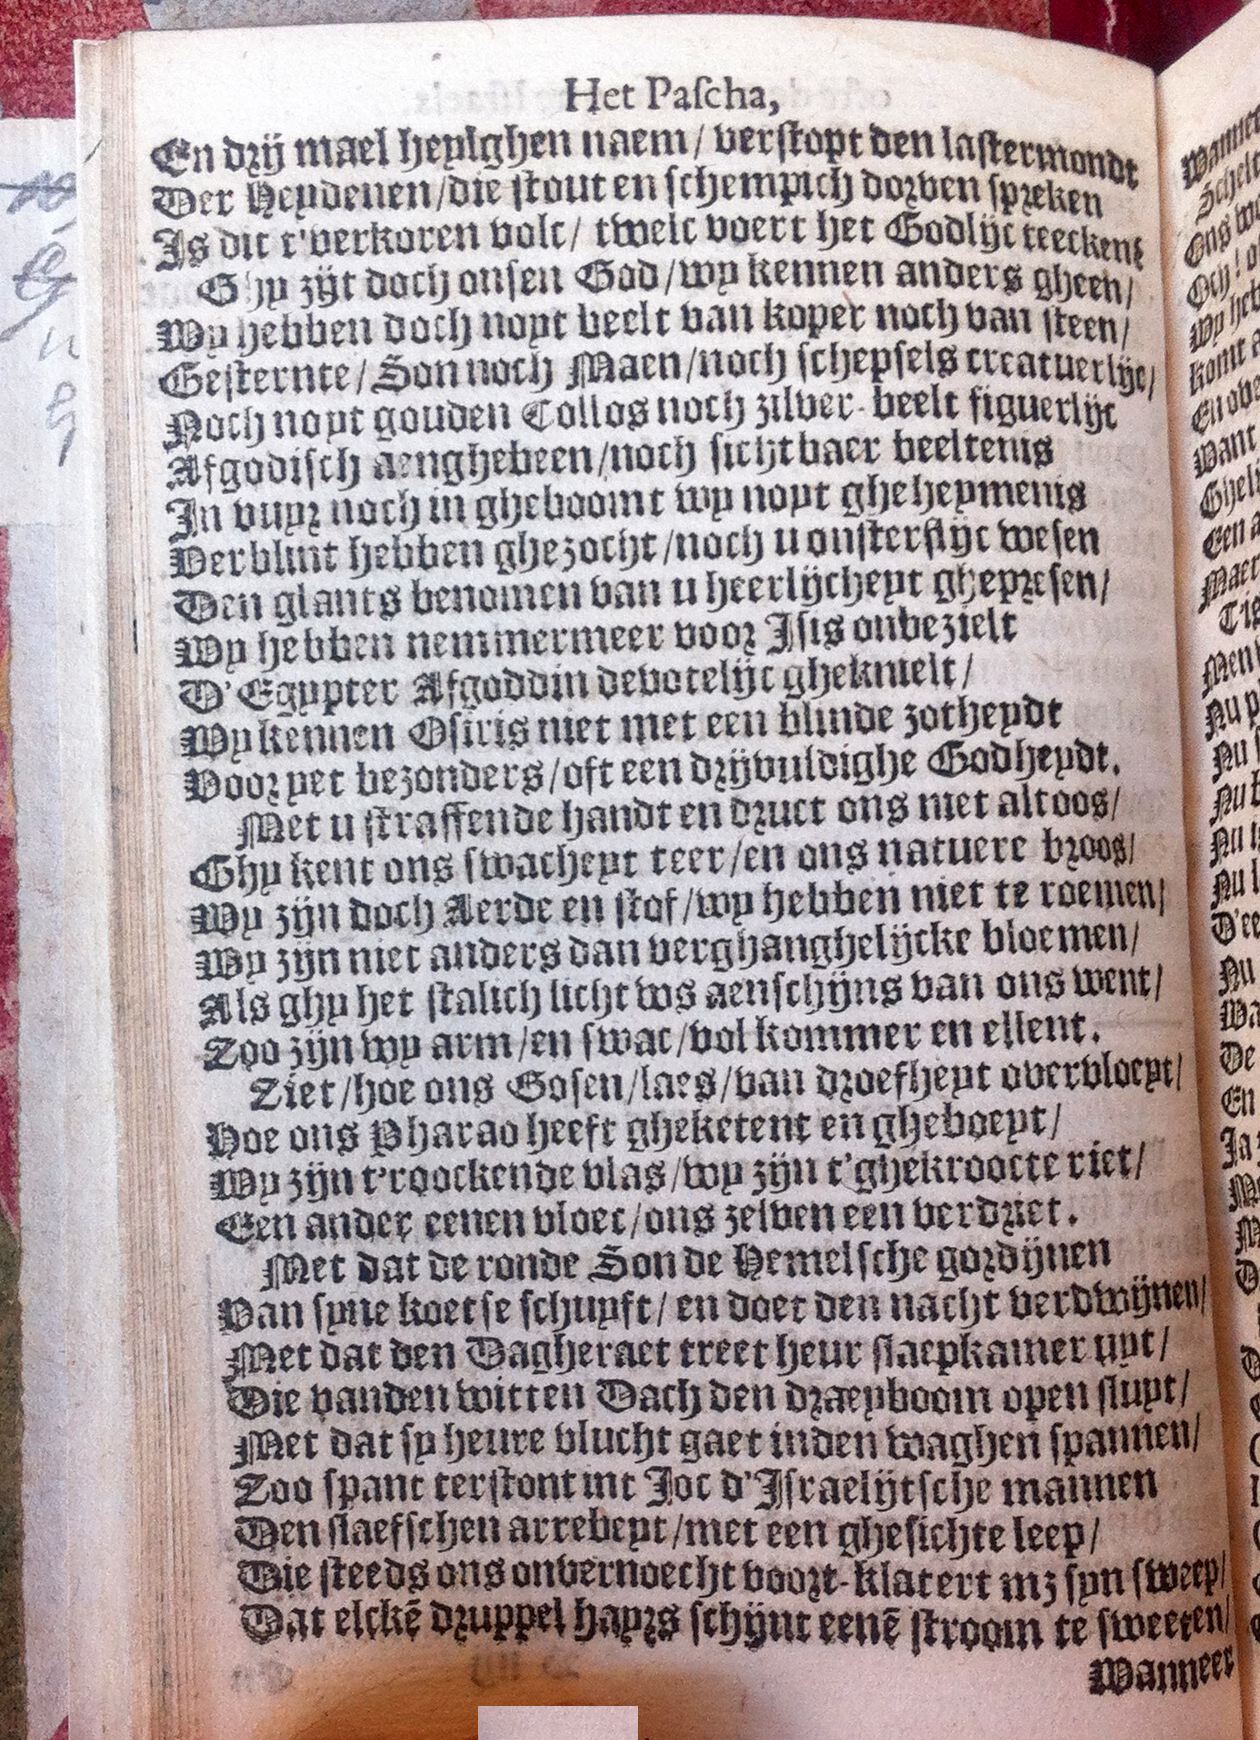 Het Paſcha,
En drij mael heylghen naem / verſtopt den laſtermondt
Der Heydenen / die ſtout en ſchempich dorven ſpreken
Is dit t'verkoren volc / twelc voert het Godlijc teeckent
Ghy zijt doch onſen God / wy kennen anders gheen /
Wy hebben doch noyt beelt van koper noch van ſteen /
Geſternte / Son noch Maen / noch ſchepſels creatuerlijc /
Noch noyt gouden Collos noch zilver-beelt figuerlijc
Afgodiſch aenghebeen / noch ſichtbaer beeltenis
In vuyr noch in gheboomt wy noyt gheheymenis
Verblint hebben ghezocht / noch u onſterflijc weſen
Den glants benomen van u heerlijcheyt ghepreſen /
Wy hebben nemmermeer voor Iſis onbezielt
D'Egypter Afgoddin devotelijc gheknielt /
Wy kennen Oſiris niet met een blinde zotheydt
Voor yet bezonders / oft een drijvuldighe Godheydt.
Met u ſtraffende handt en druct ons niet altoos /
Ghy kent ons ſwacheyt teer / en ons natuere broos /
Wy zijn doch Aerde en ſtof / wy hebben niet te roemen /
Wy zijn niet anders dan verghanghelijcke bloemen /
Als ghy het ſtalich licht ws aenſchijns van ons went /
Zoo zijn wy arm / en ſwac / vol kommer en ellent.
Ziet / hoe ons Goſen / laes / van droefheyt overvloeyt /
Hoe ons Pharao heeft gheketent en gheboeyt /
Wy zijn t'roockende vlas / wy zijn t'ghekroocte riet /
Een ander eenen vloec / ons zelven een verdriet.
Met dat de ronde Son de Hemelſche gordijnen
Van ſyne koetſe ſchuyft / en doet den nacht verdwijnen /
Met dat den Dagheraet treet heur ſlaepkamer uyt /
Die vanden witten Dach den draeyboom open ſluyt /
Met dat ſy heure vlucht gaet inden waghen ſpannen /
Zoo ſpant terſtont int Joc d'Iſraelijtſche mannen
Den ſlaefſchen arrebeyt / met een gheſichte leep /
Die ſteeds ons onvernoecht voort-klatert mz ſyn ſweep /
Dat elckē druppel hayrs ſchijnt eenē ſtroom te ſweeten /
Wanneer